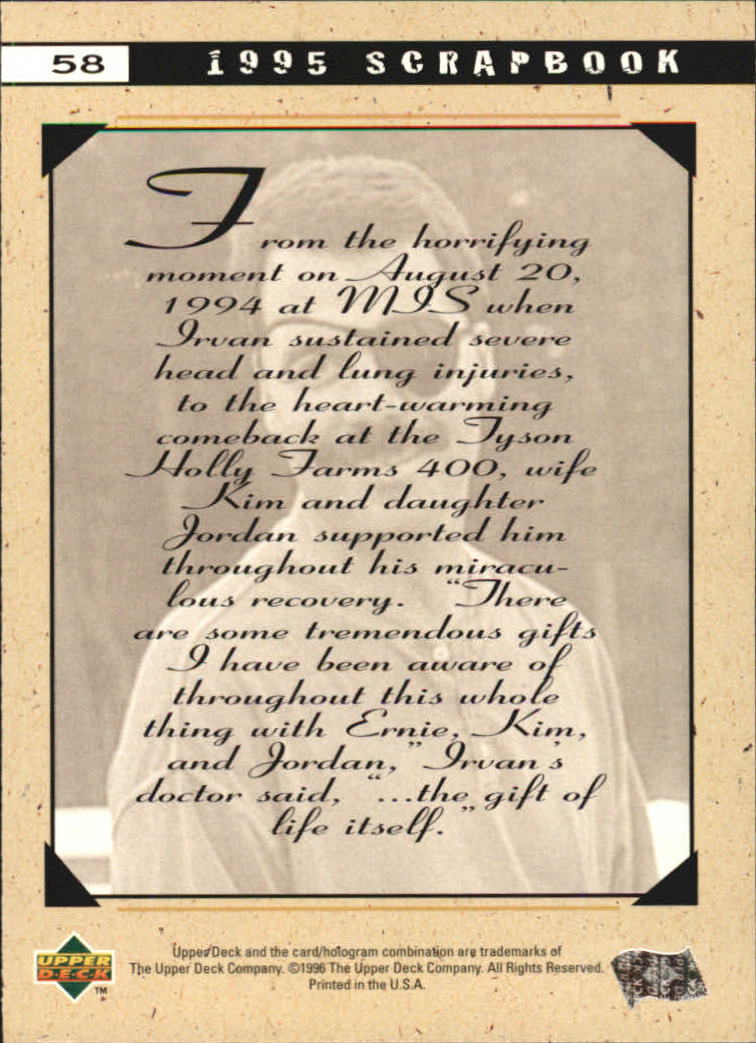 58
1995 SCRAPBOOK
From the horrifying
moment on August 20,
1994 at MIS when
Irvan sustained severe
head and lung injuries,
to the heart-warming
comeback at the Tyson
Holly Farms 400, wife
Kim and daughter
Jordan supported him
throughout his miracu-
lous recovery. "There
are some tremendous gifts
I have been aware of
throughout this whole
thing with Ernie, Kim,
and Jordan," Irvan's
doctor said, "...the gift of
life itself."
Upper Deck and the card/hologram combination are trademarks of
The Upper Deck Company. ©1996 The Upper Deck Company. All Rights Reserved.
Printed in the U.S.A.
UPPER
D.E.C.K
TM